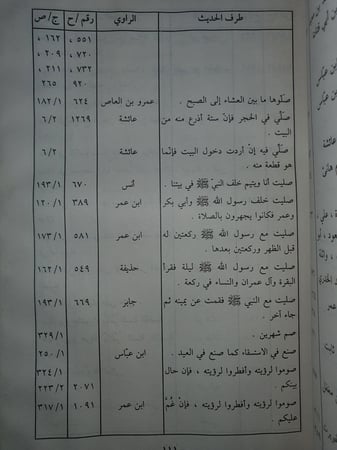 طرف الحديث الراوي رقم/ح ج/ص
٥٥١ ، ١٦٢ ،
٧٢٠ ، ٢٠٩ ،
٧٣٢ ، ٢١١ ،
٩٢٠ ٢٦٥
صلّوها ما بين العشاء إلى الصبح . عمرو بن العاص ٦٢٤ ١٨٢/١
صلّي في الحجر فإنّ ستة أذرع منه من عائشة ١٢٦٩ ٦/٢
البيت .
صلّي فيه إنْ أردت دخول البيت فإنّما عائشة ٦/٢
هو قطعة منه .
صليت أنا ويتيم خلف النبيّ ﷺ في بيتنا . أنس ٦٧٠ ١٩٣/١
صليت خلف رسول الله ﷺ وأبي بكر ابن عمر ٣٨٩ ١٢٠/١
وعمر فكانوا يجهرون بالصلاة .
صليت مع رسول الله ﷺ ركعتين له ابن عمر ٥٨١ ١٧٣/١
قبل الظهر وركعتين بعدها .
صليت مع رسول الله ﷺ ليلة فقرأ حذيفة ٥٤٩ ١٦٢/١
البقرة وآل عمران والنساء في ركعة .
صليت مع النبي ﷺ فقمت عن يمينه ثم جابر ٦٦٩ ١٩٣/١
جاء آخر .
صم شهرين . ٣٢٩/١
صنع في الاستسقاء كما صنع في العيد . ابن عبّاس ٢٥٠/١
صوموا لرؤيته وأفطروا لرؤيته ، فإن حال ٣٢٤/١
بينكم . ٢٠٧١ ٢٢٣/٢
صوموا لرؤيته وأفطروا لرؤيته ، فإنْ غُمَّ ابن عمر ١٠٩١ ٣١٧/١
عليكم .